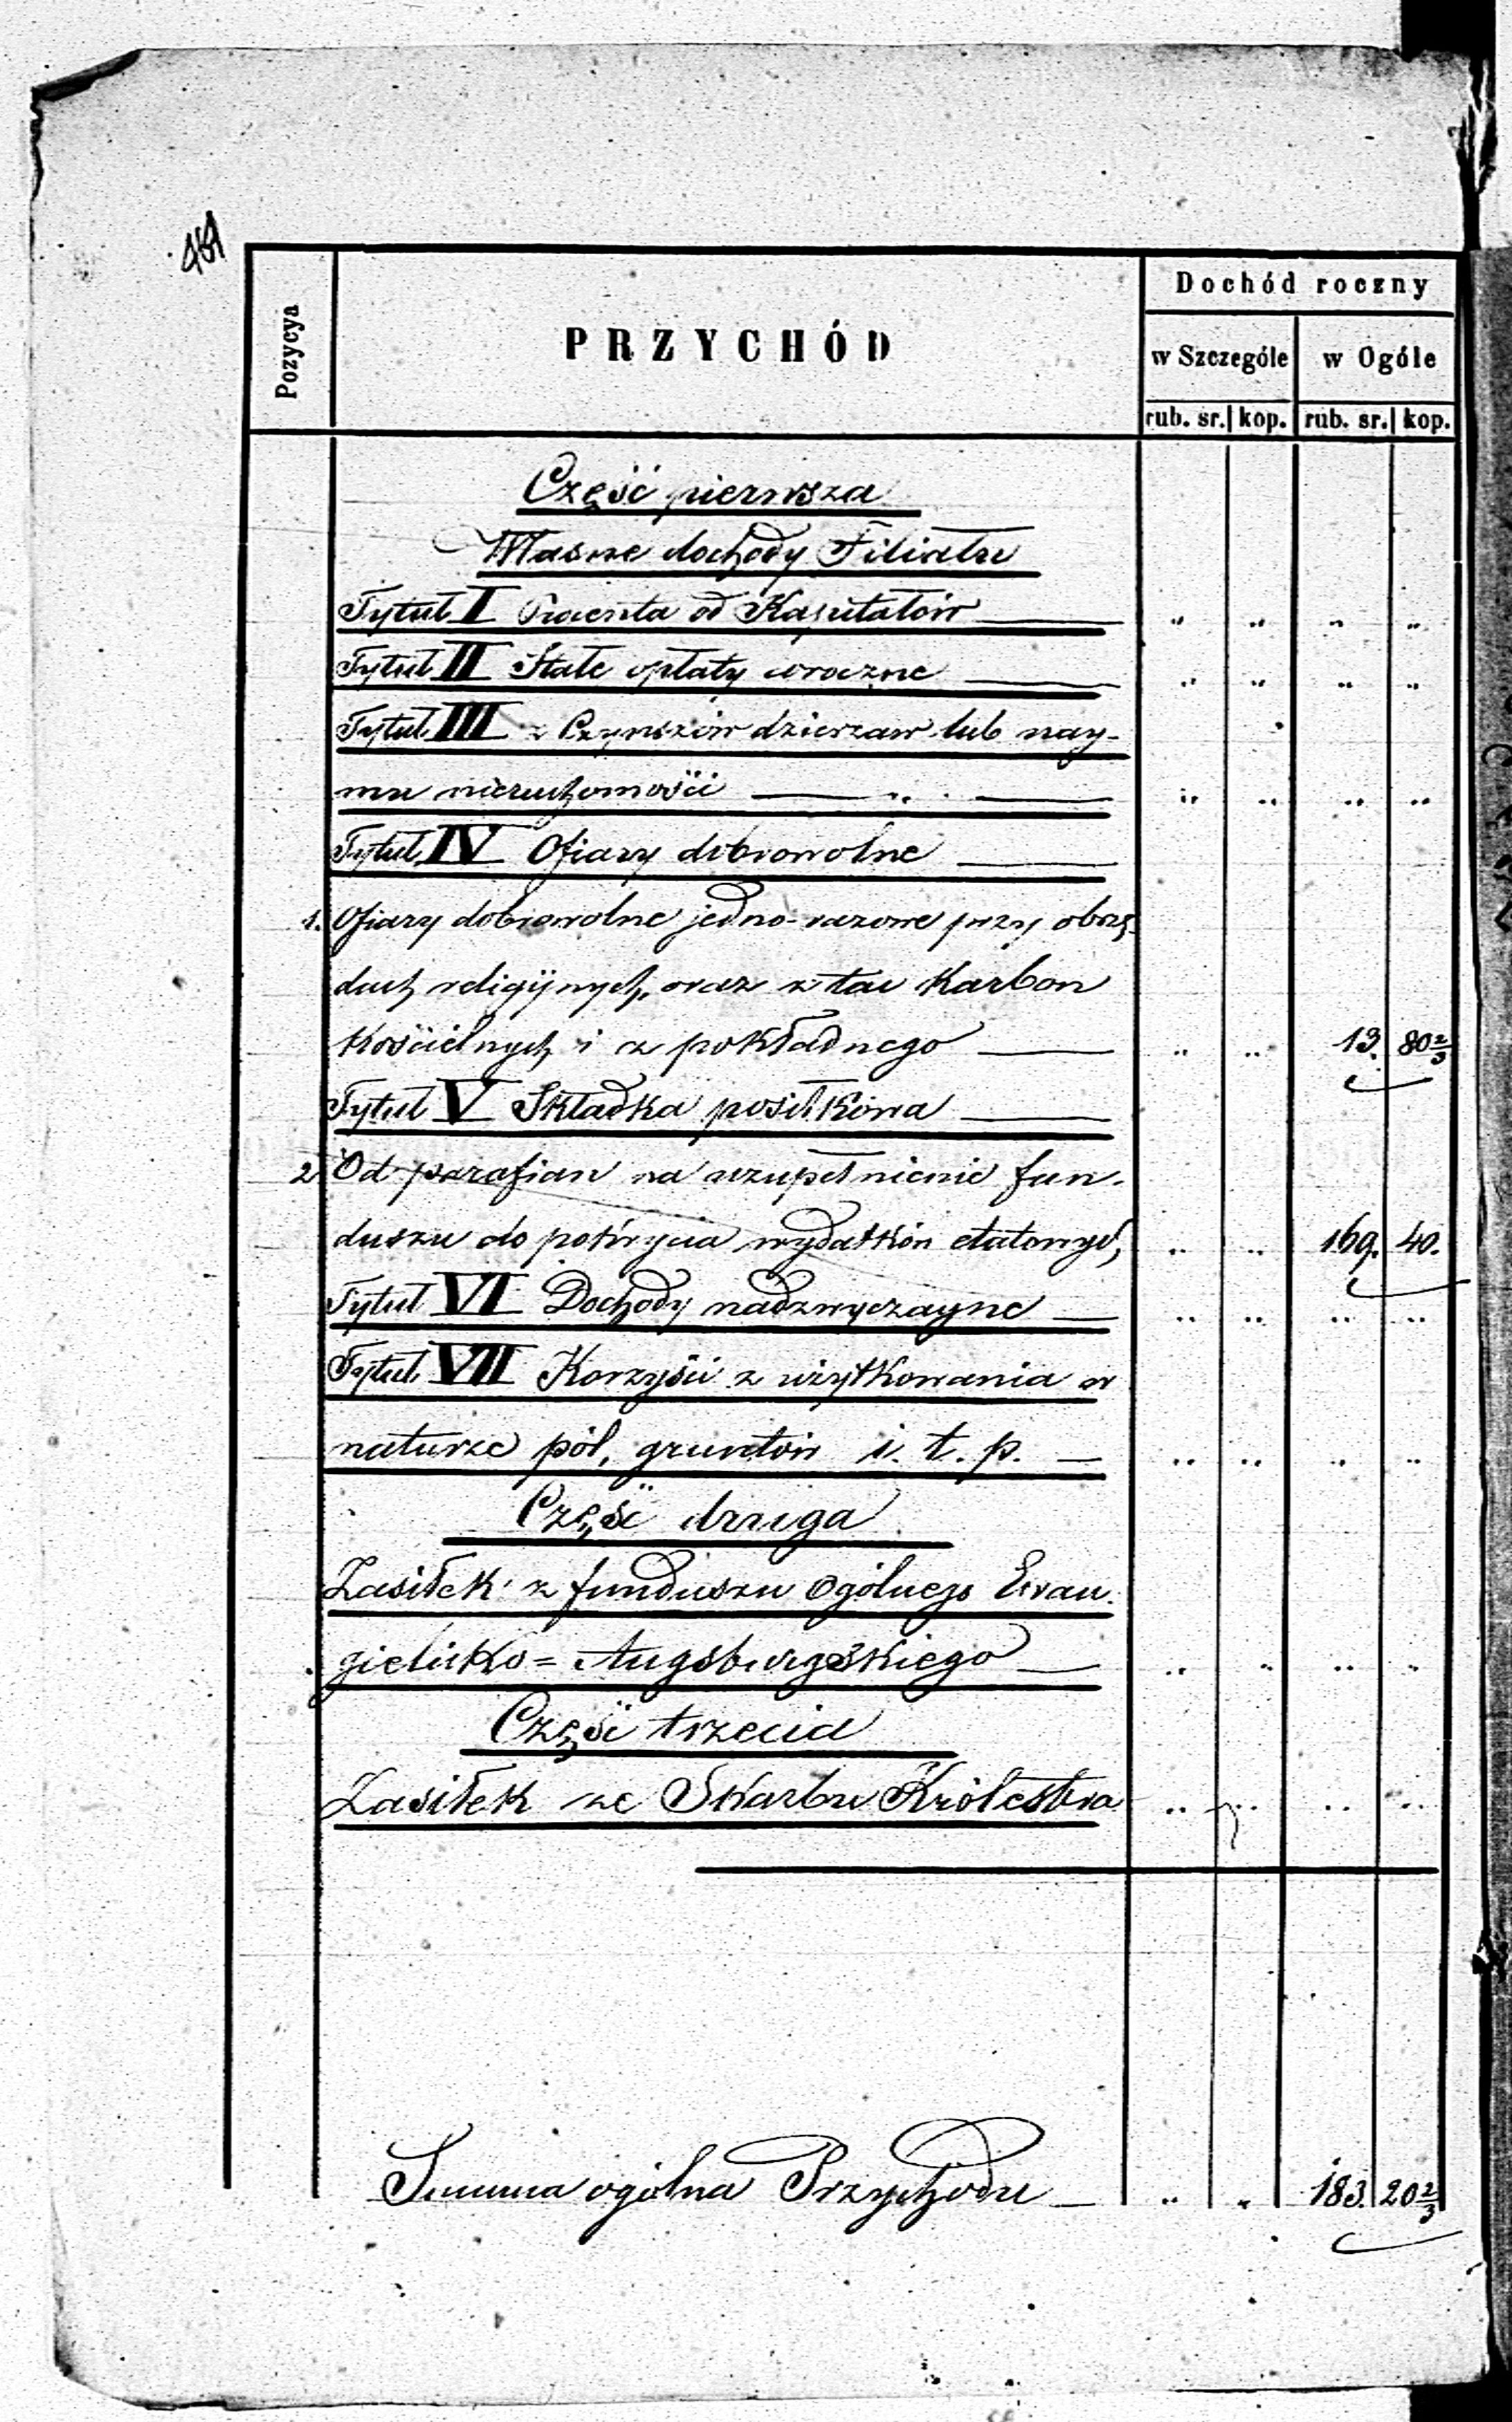 Dochód roczny
Pozycya
PRZYCHÓD
w Szczególe w Ogóle
rub. sr. kop. rub. sr. kop.
Część pierwsza
Własne dochody Filiału
Tytuł I Procenta od Kapitałów — " " " "
Tytuł II Stałe opłaty coroczne — " " " "
Tytuł III z Czynszów dzierzaw lub nay-
mu nieruchomości — " — " " " "
Tytuł IV Ofiary dobrowolne —
1. Ofiary dobrowolne jedno-razowe przy obrzę-
dach religijnych, oraz z tac Karbon
Kościelnych i z pokładnego — " " 13. 80 2/3
Tytuł V Składka posiłkowa —
2. Od parafian na uzupełnienie fun-
duszu do pokrycia wydatków etatowych, " " 169. 40.
Tytuł VI Dochody nadzwyczayne — " " " "
Tytuł VII Korzyści z użytkowania w
naturze pól, gruntów i. t. p. — " " " "
Część druga
Zasiłek z funduszu ogólnego Ewan-
gielicko=Augsburgskiego — " " " "
Część trzecia
Zasiłek ze Skarbu Królestwa " " " "
Summa ogólna Przychodu — " " 183. 20 2/3